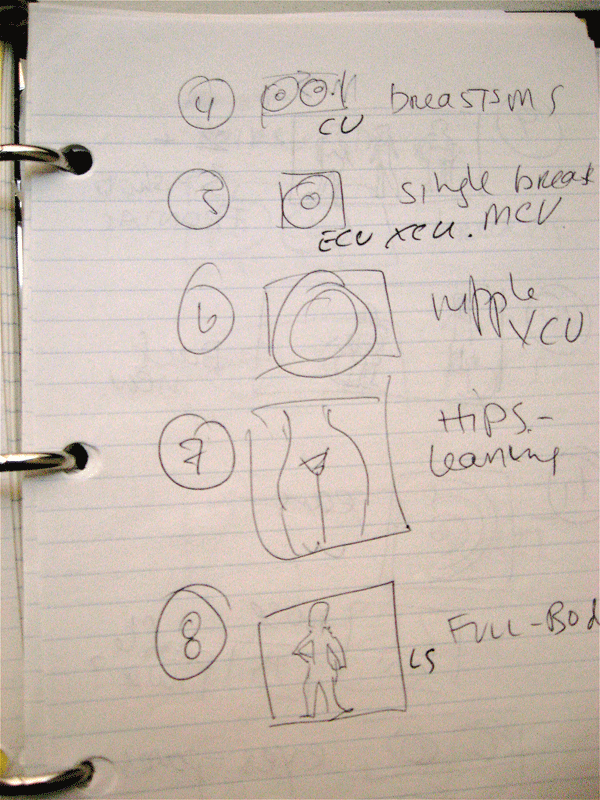 4 breasts MS
CU
5 single breast
ECU XCU. MCU
6 nipple
XCU
7 HiPS-
Leaning
8 FULL-BOD
LS